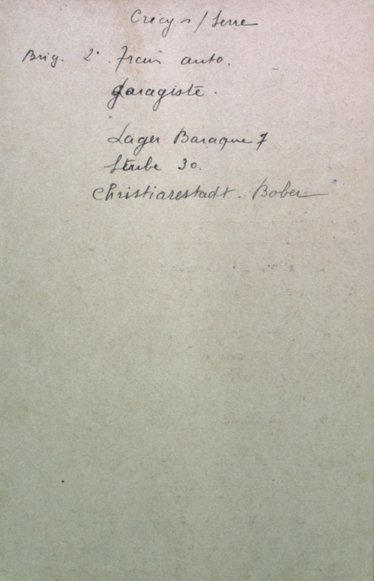 Crécy s/Serre
Brig. 2e Train auto.
Garagiste.
Lager Baraque 7
Stube 30.
Christianstadt. Bober